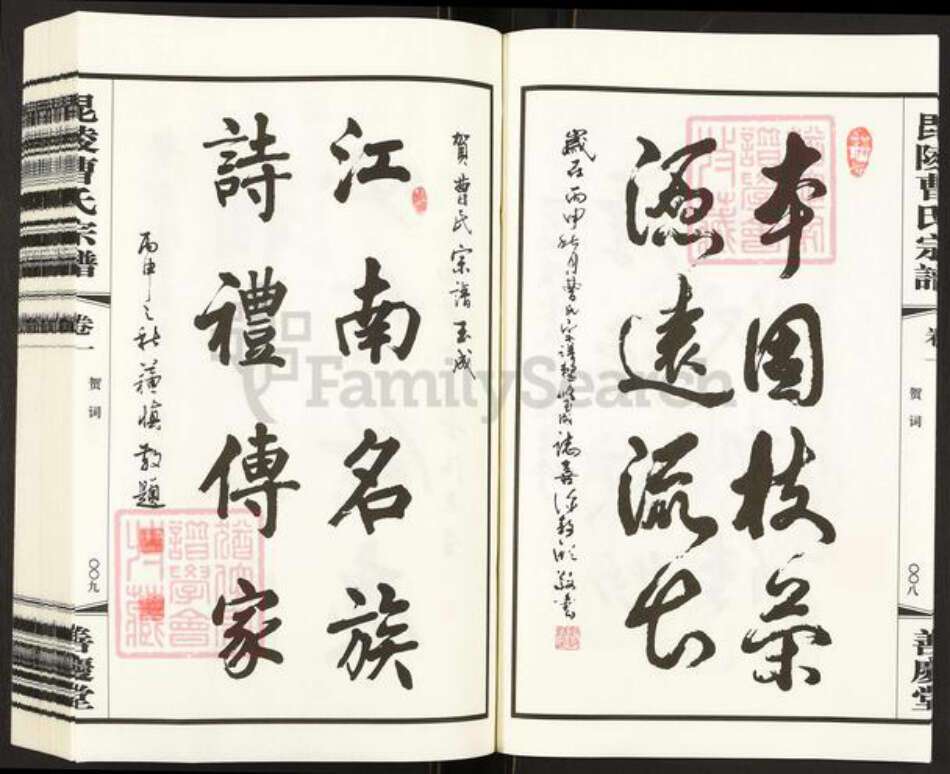 毘陵曹氏宗譜
卷一
贺词
〇〇八
善慶堂
本固枝荣
源遠流长
歲在丙申秋月曹氏宗譜
敬書
賀曹氏宗譜玉成
江南名族
詩禮傳家
丙申之秋
敬題
毘陵曹氏宗譜
卷一
贺词
〇〇九
善慶堂
FamilySearch